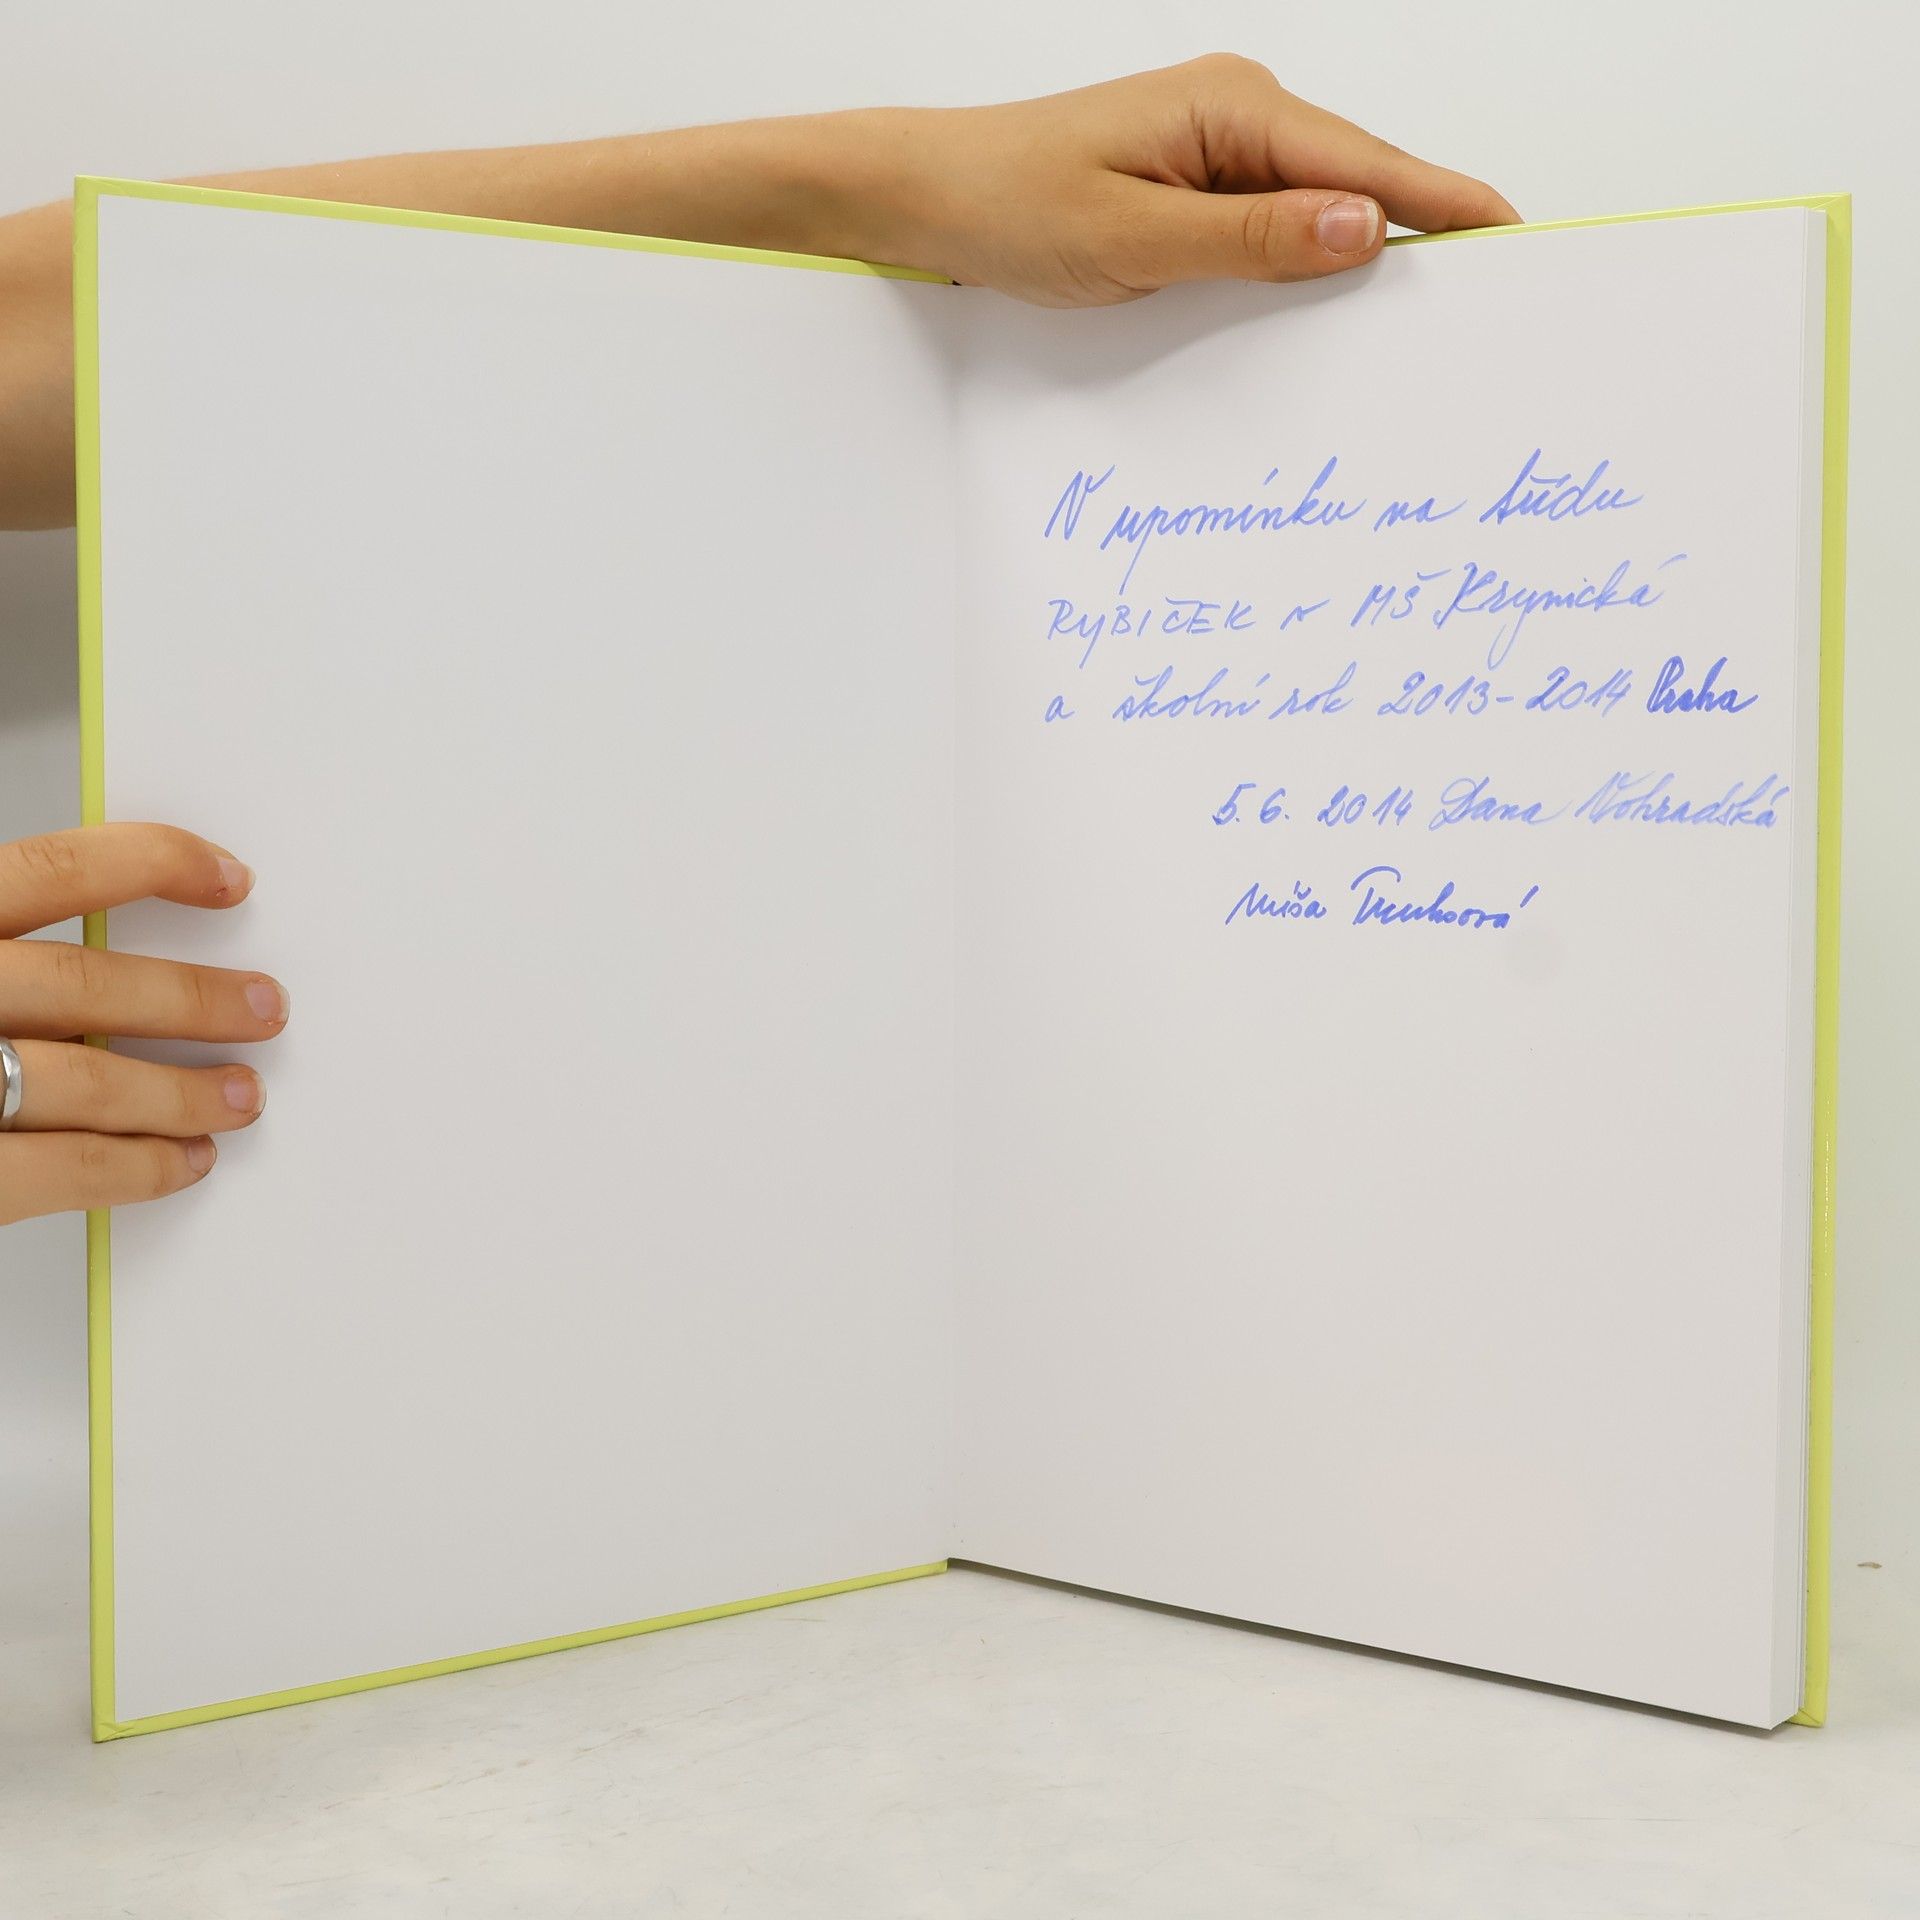 V upomínku na třídu
RYBIČEK v MŠ Krynická
a školní rok 2013-2014 Praha
5. 6. 2014 Dana Vohradská
Míša